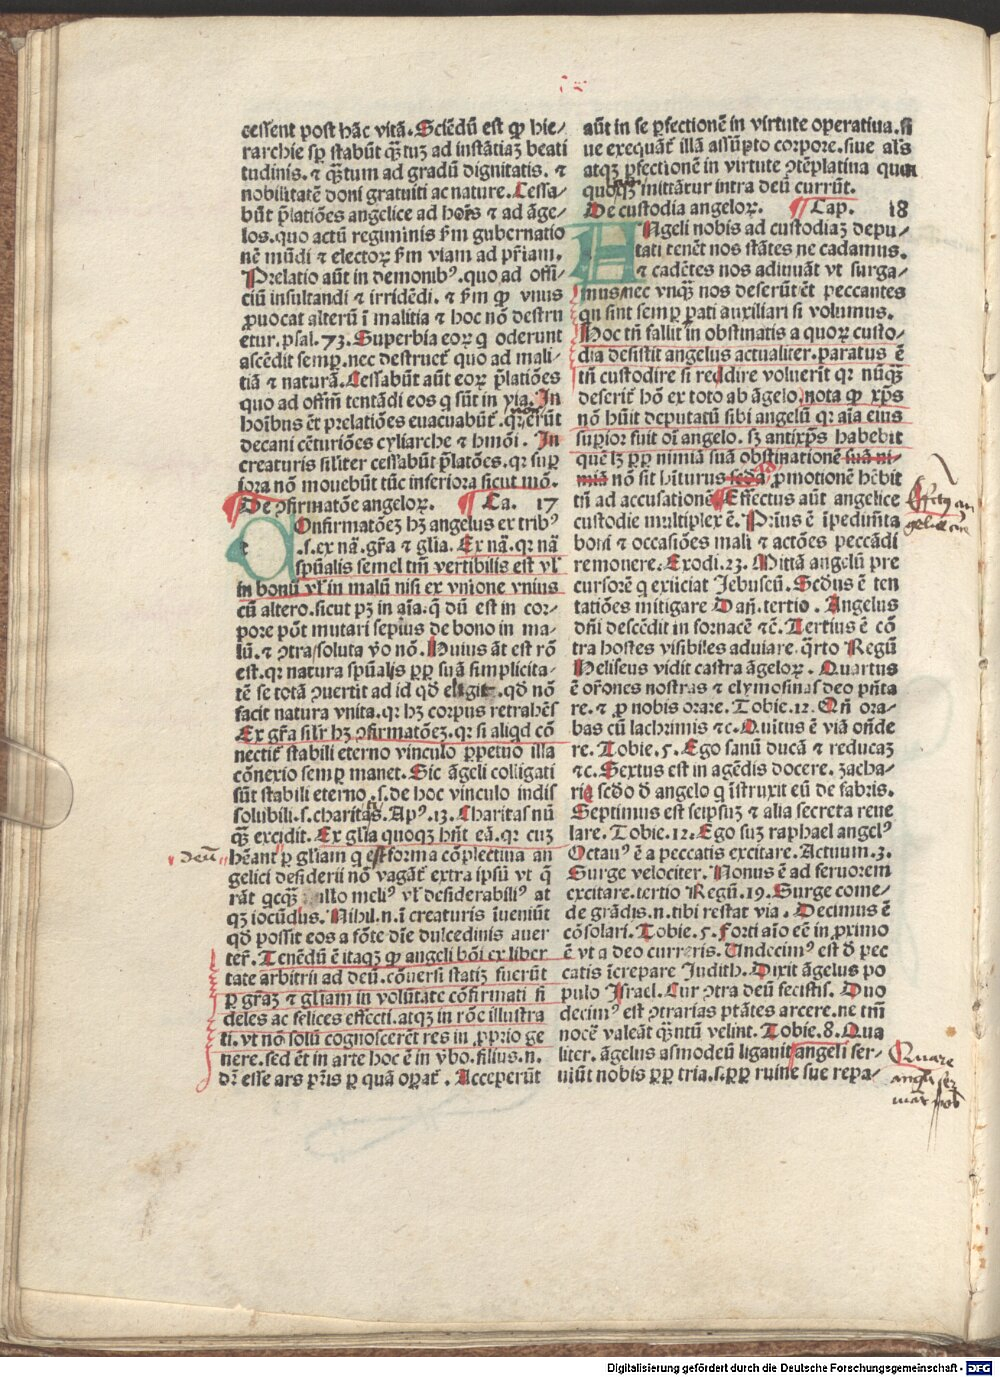 cessent post hāc vitā. Sciēdū est ꝙ hie/
rarchie sꝑ stabūt q̄tuꝫ ad instātiaꝫ beati
tudinis. ⁊ q̄tum ad gradū dignitatis. ⁊
nobilitatē doni gratuiti ac nature. Cessa/
būt p̄latiōes angelice ad hoīes ⁊ ad āge/
los. quo actū regiminis ẜm gubernatio
nē mūdi ⁊ electoꝝ ẜm viam ad pr̄iam.
Prelatio aūt in demonibꝰ. quo ad offi/
ciū insultandi ⁊ irridēdi. ⁊ ẜm ꝙ vnus
ꝓuocat alterū ī malitia ⁊ hoc nō destru
etur. psal. 73. Superbia eoꝝ q oderunt
ascēdit semꝑ. nec destruct̄ quo ad mali/
tiā ⁊ naturā. Cessabūt aūt eoꝝ p̄latiōes
quo ad offm̄ tentādi eos q sūt in via. In
hoībus ēt prelatiōes euacuabūt̄. qꝛ nō erūt
decani cēturiōes cyliarche ⁊ hmōi. In
creaturis sīliter cessabūt p̄latōes. qꝛ suꝑ
iora nō mouebūt tūc inferiora sicut mō.
De ꝯfirmatōe angeloꝝ. ¶ Ca. 17
COnfirmatōeꝫ hꝫ angelus ex tribꝰ
.s. ex nā. gr̄a ⁊ gl̄ia. Ex nā. qꝛ nā
sp̄ualis semel tm̄ vertibilis est vl̓
in bonū vl̓ in malū nisi ex vnione vnius
cū altero. sicut pꝫ in aīa. q̄ dū est in cor/
pore pōt mutari sepius de bono in ma/
lū. ⁊ ꝯtra soluta v̓o nō. Huius āt est rō
est. qꝛ natura sp̄ualis ꝓp̄ suā simplicita/
tē se totā ꝯuertit ad id qd̓ eligit. qd̓ nō
facit natura vnita. qꝛ hꝫ corpus retrahēs
Ex gr̄a sil̓r hꝫ ꝯfirmatōeꝫ. qꝛ si aliqd cō
nectit̄ stabili eterno vinculo ꝑpetuo illa
cōnexio semꝑ manet. Sic āgeli colligati
sūt stabili eterno .s. de hoc vinculo indis
solubili. s. charitas. Apꝰ. 13. Charitas nū
q̄ excidit. Ex gl̄ia quoqꝫ hn̄t eā. qꝛ cuꝫ
deū
hēant ꝑ gl̄iam q est forma cōplectiua an
gelici desiderii nō vagāt̄ extra ipsū vt q̄
rāt qcq̄ illo meliꝰ vl̓ desiderabiliꝰ at
qꝫ iocūdius. Nihil. n. ī creaturis īueniūt
qd̓ possit eos a fōte dīe dulcedinis auer
ter̄. Tenēdū ē itaqꝫ ꝙ angeli bōi ex liber
tate arbitrii ad deū. cōuersi statiꝫ fuerūt
ꝑ gr̄aꝫ ⁊ gl̄iam in volūtate cōfirmati fi
deles ac felices effecti. atqꝫ in rōe illustra
ti. vt nō solū cognoscerēt res in ꝓprio ge
nere. sed ēt in arte hoc ē in v̓bo. filius. n.
dr̄ esse ars pr̄is ꝑ quā oꝑat̄. Acceperūt
aūt in se ꝑfectionē in virtute operatiua. si
ue exequāt̄ illā assūpto corpore. siue al̓s
atqꝫ ꝑfectionē in virtute ꝯtēplatiua quā
quoqꝫ inittātur intra deū currūt.
De custodia angeloꝝ. ¶ Cap. 18
ANgeli nobis ad custodiaꝫ depu/
tati tenēt nos stātes ne cadamus.
⁊ cadētes nos adiuuāt vt surga/
mus nec vnq̄ nos deserūt ēt peccantes
qn̄ sint semꝑ pati auxiliari si volumus.
Hoc tn̄ fallit in obstinatis a quoꝝ custo/
dia desistit angelus actualiter. paratus ē
tn̄ custodire si reddire voluerit qꝛ nūq̄
deserit hō ex toto ab āgelo. nota ꝙ xp̄s
nō hūit deputatū sibi angelū qꝛ aīa eius
suꝑior fuit oī angelo. sꝫ antixp̄s habebit
quē lꝫ ꝓp̄ nimiā suā obstinationē suā ni/
miā nō sit hīturus seda ad ꝓmotionē hēbit
tn̄ ad accusationē. Effectus aūt angelice
custodie multiplex ē. Prius ē īpedimēta
boni ⁊ occasiōes mali ⁊ actōes peccādi
remouere. Exodi. 23. Mittā angelū pre
cursorē q eiiciat Jebuseū. Scd̓us ē ten
tatiōes mitigare Dan̄. tertio. Angelus
dn̄i descēdit in fornacē ⁊c̄. Tertius ē cō
tra hostes visibiles adiuare. q̄rto Regū
Heliseus vidit castra āgeloꝝ. Quartus
ē or̄ones nostras ⁊ elymosinas deo pn̄ta
re. ⁊ ꝓ nobis orare. Tobie. 12. Qn̄ ora/
bas cū lachrimis ⁊c. Quītus ē viā ondē
re. Tobie. 5. Ego sanū ducā ⁊ reducaꝫ
⁊c. Sextus est in agēdis docere. zacha/
rie scd̓o d̓ angelo q īstruxit eū de fabris.
Septimus est seipsuꝫ ⁊ alia secreta reue
lare. Tobie. 12. Ego suꝫ raphael angelꝰ
Octauꝰ ē a peccatis excitare. Actuum. 3.
Surge velociter. Nonus ē ad feruorem
excitare. tertio Regū. 19. Surge come/
de grādis. n. tibi restat via. Decimus ē
cōsolari. Tobie. 5. Forti aīo eē in ꝓximo
ē vt a deo cureris. Undecimꝰ est d̓ pec
catis īcrepare Judith. Dixit āgelus po
pulo Israel. Cur ꝯtra deū fecistis. Duo
decimꝰ est ꝯtrarias ptātes arcere. ne tm̄
nocē valeāt q̄ntū velint. Tobie. 8. Qua
liter. āgelus asmodeū ligauit angeli ser-
uiūt nobis ꝓp̄ tria. s. ꝓp̄ ruine sue repa/
Quare